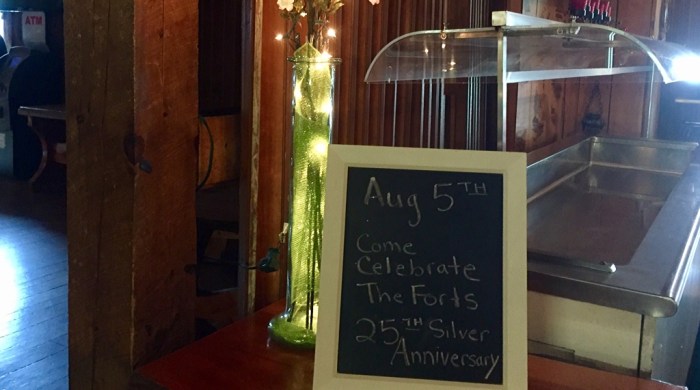 ATM
Aug 5TH
Come
Celebrate
The Forts
25TH Silver
Anniversary